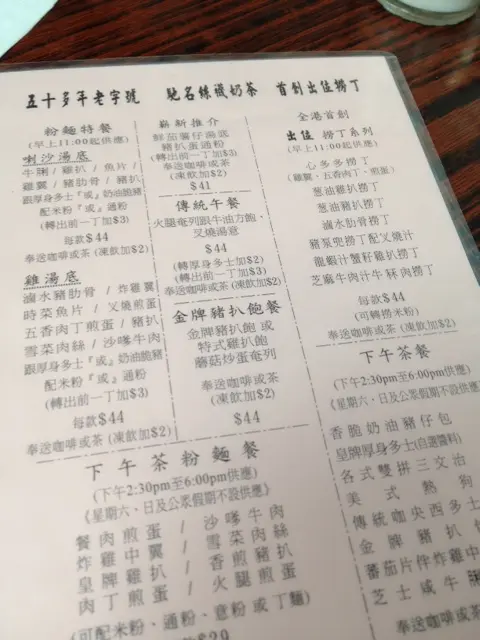 五十多年老字號 馳名絲襪奶茶 首創出位撈丁
粉麵特餐
(早上11:00起供應)
喇沙湯底
牛脷 / 雞扒 / 魚片 /
雞翼 / 豬肋骨 / 豬扒
跟厚身多士『或』奶油脆豬
配米粉『或』通粉
(轉出前一丁加$3)
每款$44
奉送咖啡或茶 (凍飲加$2)
雞湯底
滷水豬肋骨 / 炸雞翼
時菜魚片 / 叉燒煎蛋
五香肉丁煎蛋 / 豬扒
雪菜肉絲 / 沙嗲牛肉
跟厚身多士『或』奶油脆豬
配米粉『或』通粉
(轉出前一丁加$3)
每款$44
奉送咖啡或茶 (凍飲加$2)
嶄新推介
鮮茄薯仔湯底
豬扒蛋通粉
(轉出前一丁加$3)
奉送咖啡或茶
(凍飲加$2)
$41
傳統午餐
火腿奄列跟牛油方飽、
叉燒湯意
$44
(轉厚身多士加$2)
(轉出前一丁加$3)
奉送咖啡或茶 (凍飲加$2)
金牌豬扒飽餐
金牌豬扒飽 或
特式雞扒飽
蘑菇炒蛋奄列
奉送咖啡或茶
(凍飲加$2)
$44
全港首創
出位 撈丁系列
(早上11:00起供應)
心多多撈丁
(雞翼、五香肉丁、煎蛋)
葱油雞扒撈丁
葱油豬扒撈丁
滷水肋骨撈丁
豬頸兜撈丁配叉燒汁
龍蝦汁蟹籽雞扒撈丁
芝麻牛肉汁牛冧肉撈丁
每款$44
(可轉撈米粉)
奉送咖啡或茶 (凍飲加$2)
下午茶餐
(下午2:30pm至6:00pm供應)
《星期六、日及公眾假期不設供應
香脆奶油豬仔包
皇牌厚身多士(自選醬料)
各式雙拼三文治
美式熱狗
傳統咖央西多士
金牌豬扒
蕃茄片伴炸雞中
芝士咸牛脷
奉送咖啡或茶
下午茶粉麵餐
(下午2:30pm至6:00pm供應)
《星期六、日及公眾假期不設供應》
餐肉煎蛋 / 沙嗲牛肉
炸雞中翼 / 雪菜肉絲
皇牌雞扒 / 香煎豬扒
肉丁煎蛋 / 火腿煎蛋
(可配米粉、通粉、意粉 或 丁麵)